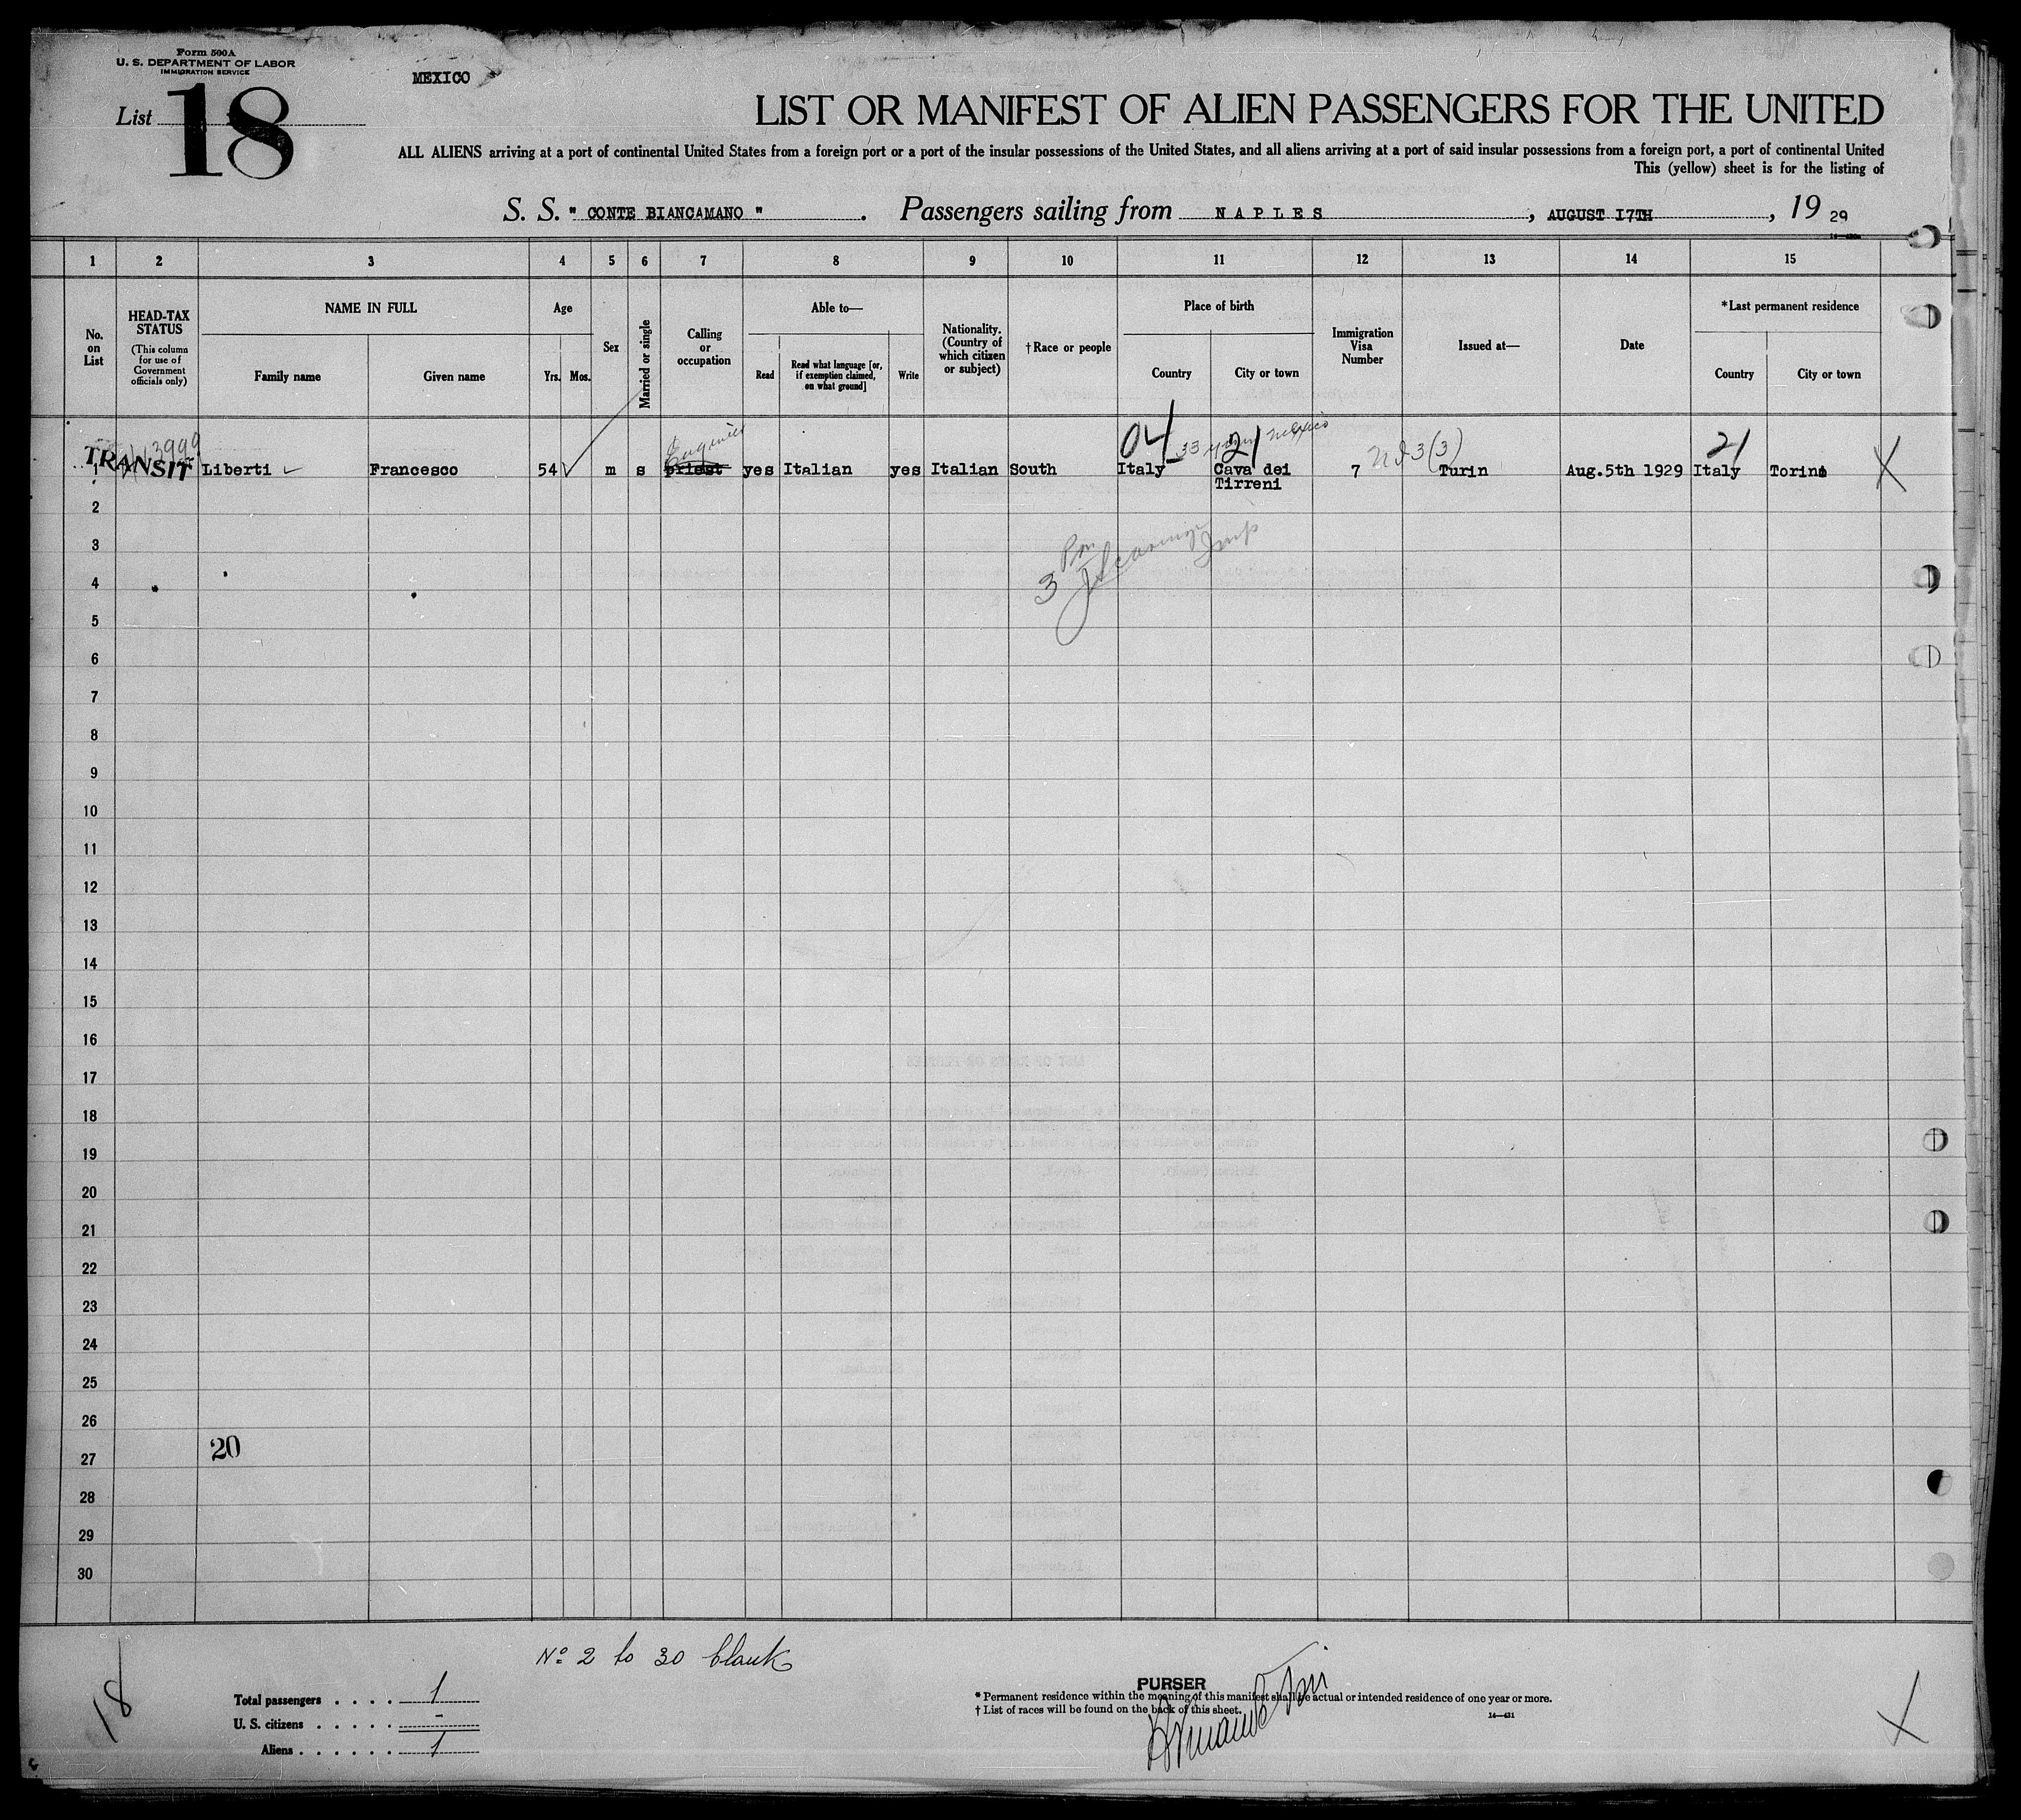 Form 500A
U. S. DEPARTMENT OF LABOR
IMMIGRATION SERVICE
MEXICO
List 18
LIST OR MANIFEST OF ALIEN PASSENGERS FOR THE UNITED
ALL ALIENS arriving at a port of continental United States from a foreign port or a port of the insular possessions of the United States, and all aliens arriving at a port of said insular possessions from a foreign port, a port of continental United
This (yellow) sheet is for the listing of
S. S. " CONTE BIANCAMANO " . Passengers sailing from NAPLES , AUGUST 17TH , 19 29
1 2 3 4 5 6 7 8 9 10 11 12 13 14 15
No. on List
HEAD-TAX STATUS
(This column for use of Government officials only)
NAME IN FULL
Family name Given name
Age
Yrs. Mos.
Sex
Married or single
Calling or occupation
Able to—
Read
Read what language [or, if exemption claimed, on what ground]
Write
Nationality. (Country of which citizen or subject)
†Race or people
Place of birth
Country City or town
Immigration Visa Number
Issued at—
Date
*Last permanent residence
Country City or town
04 21 Mexico 21
3(3)
TRANSIT
1 Liberti Francesco 54 m s priest yes Italian yes Italian South Italy Cava dei Tirreni 7 Turin Aug.5th 1929 Italy Torino X
2
3
3 Pm
4
5
6
7
8
9
10
11
12
13
14
15
16
17
18
19
20
21
22
23
24
25
26
20
27
28
29
30
No 2 to 30 blank
18
Total passengers . . . . 1
U. S. citizens . . . . . -
Aliens . . . . . . 1
PURSER
* Permanent residence within the meaning of this manifest shall be actual or intended residence of one year or more.
† List of races will be found on the back of this sheet.
14—431
X